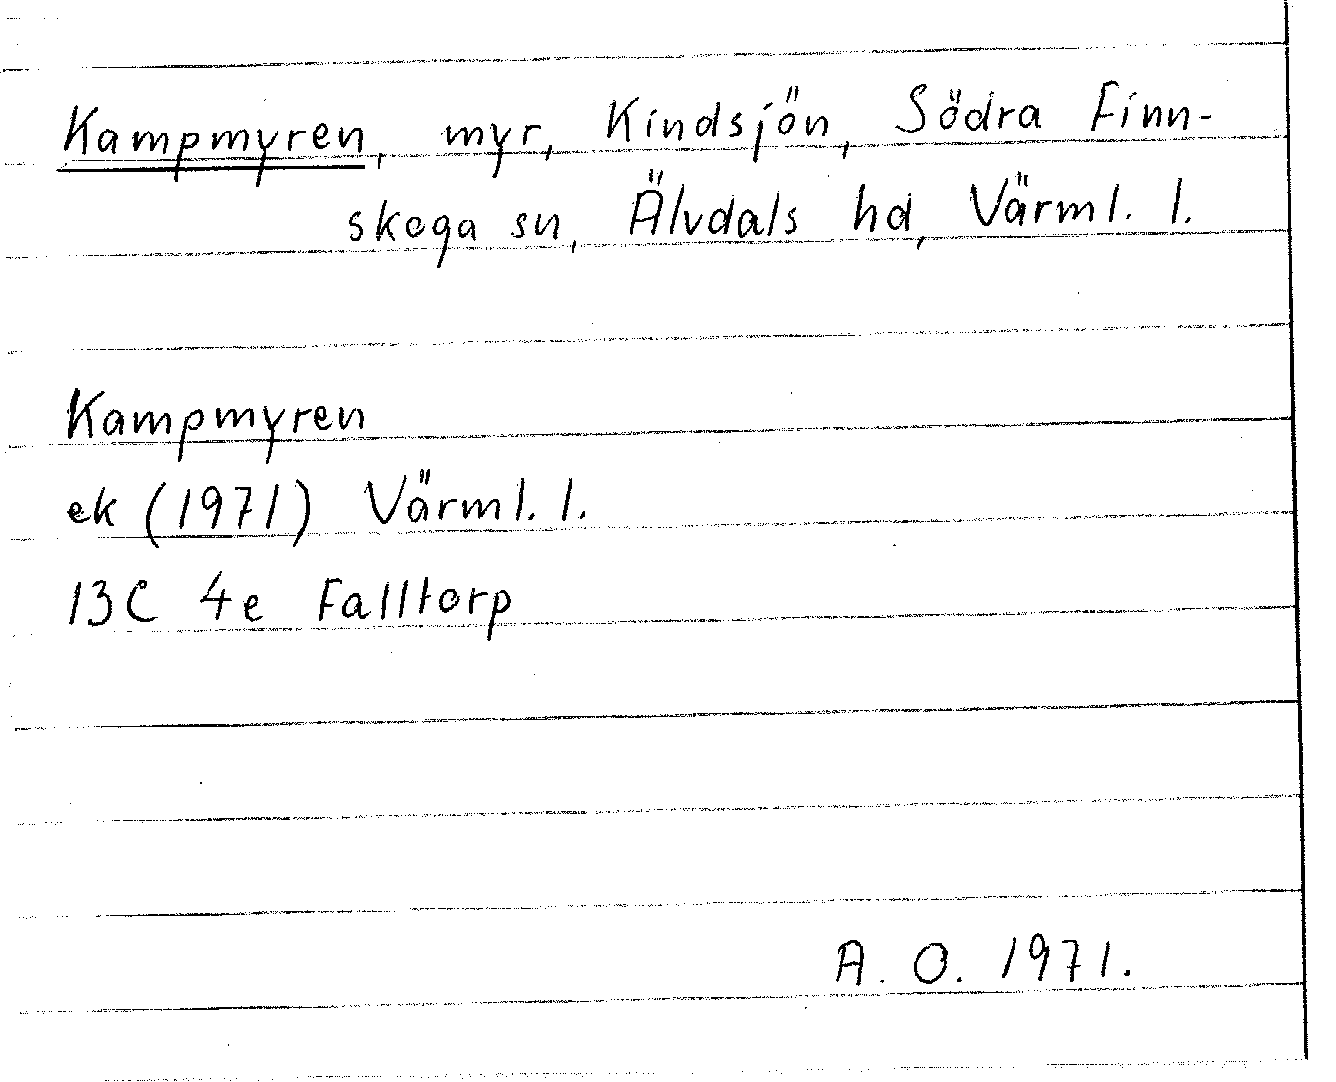 Kampmyren, myr, Kindsjön, Södra Finn-
skoga sn, Älvdals hd, Värml. l.
Kampmyren
ek (1971) Värml. l.
13C 4e Falltorp
A. O. 1971.